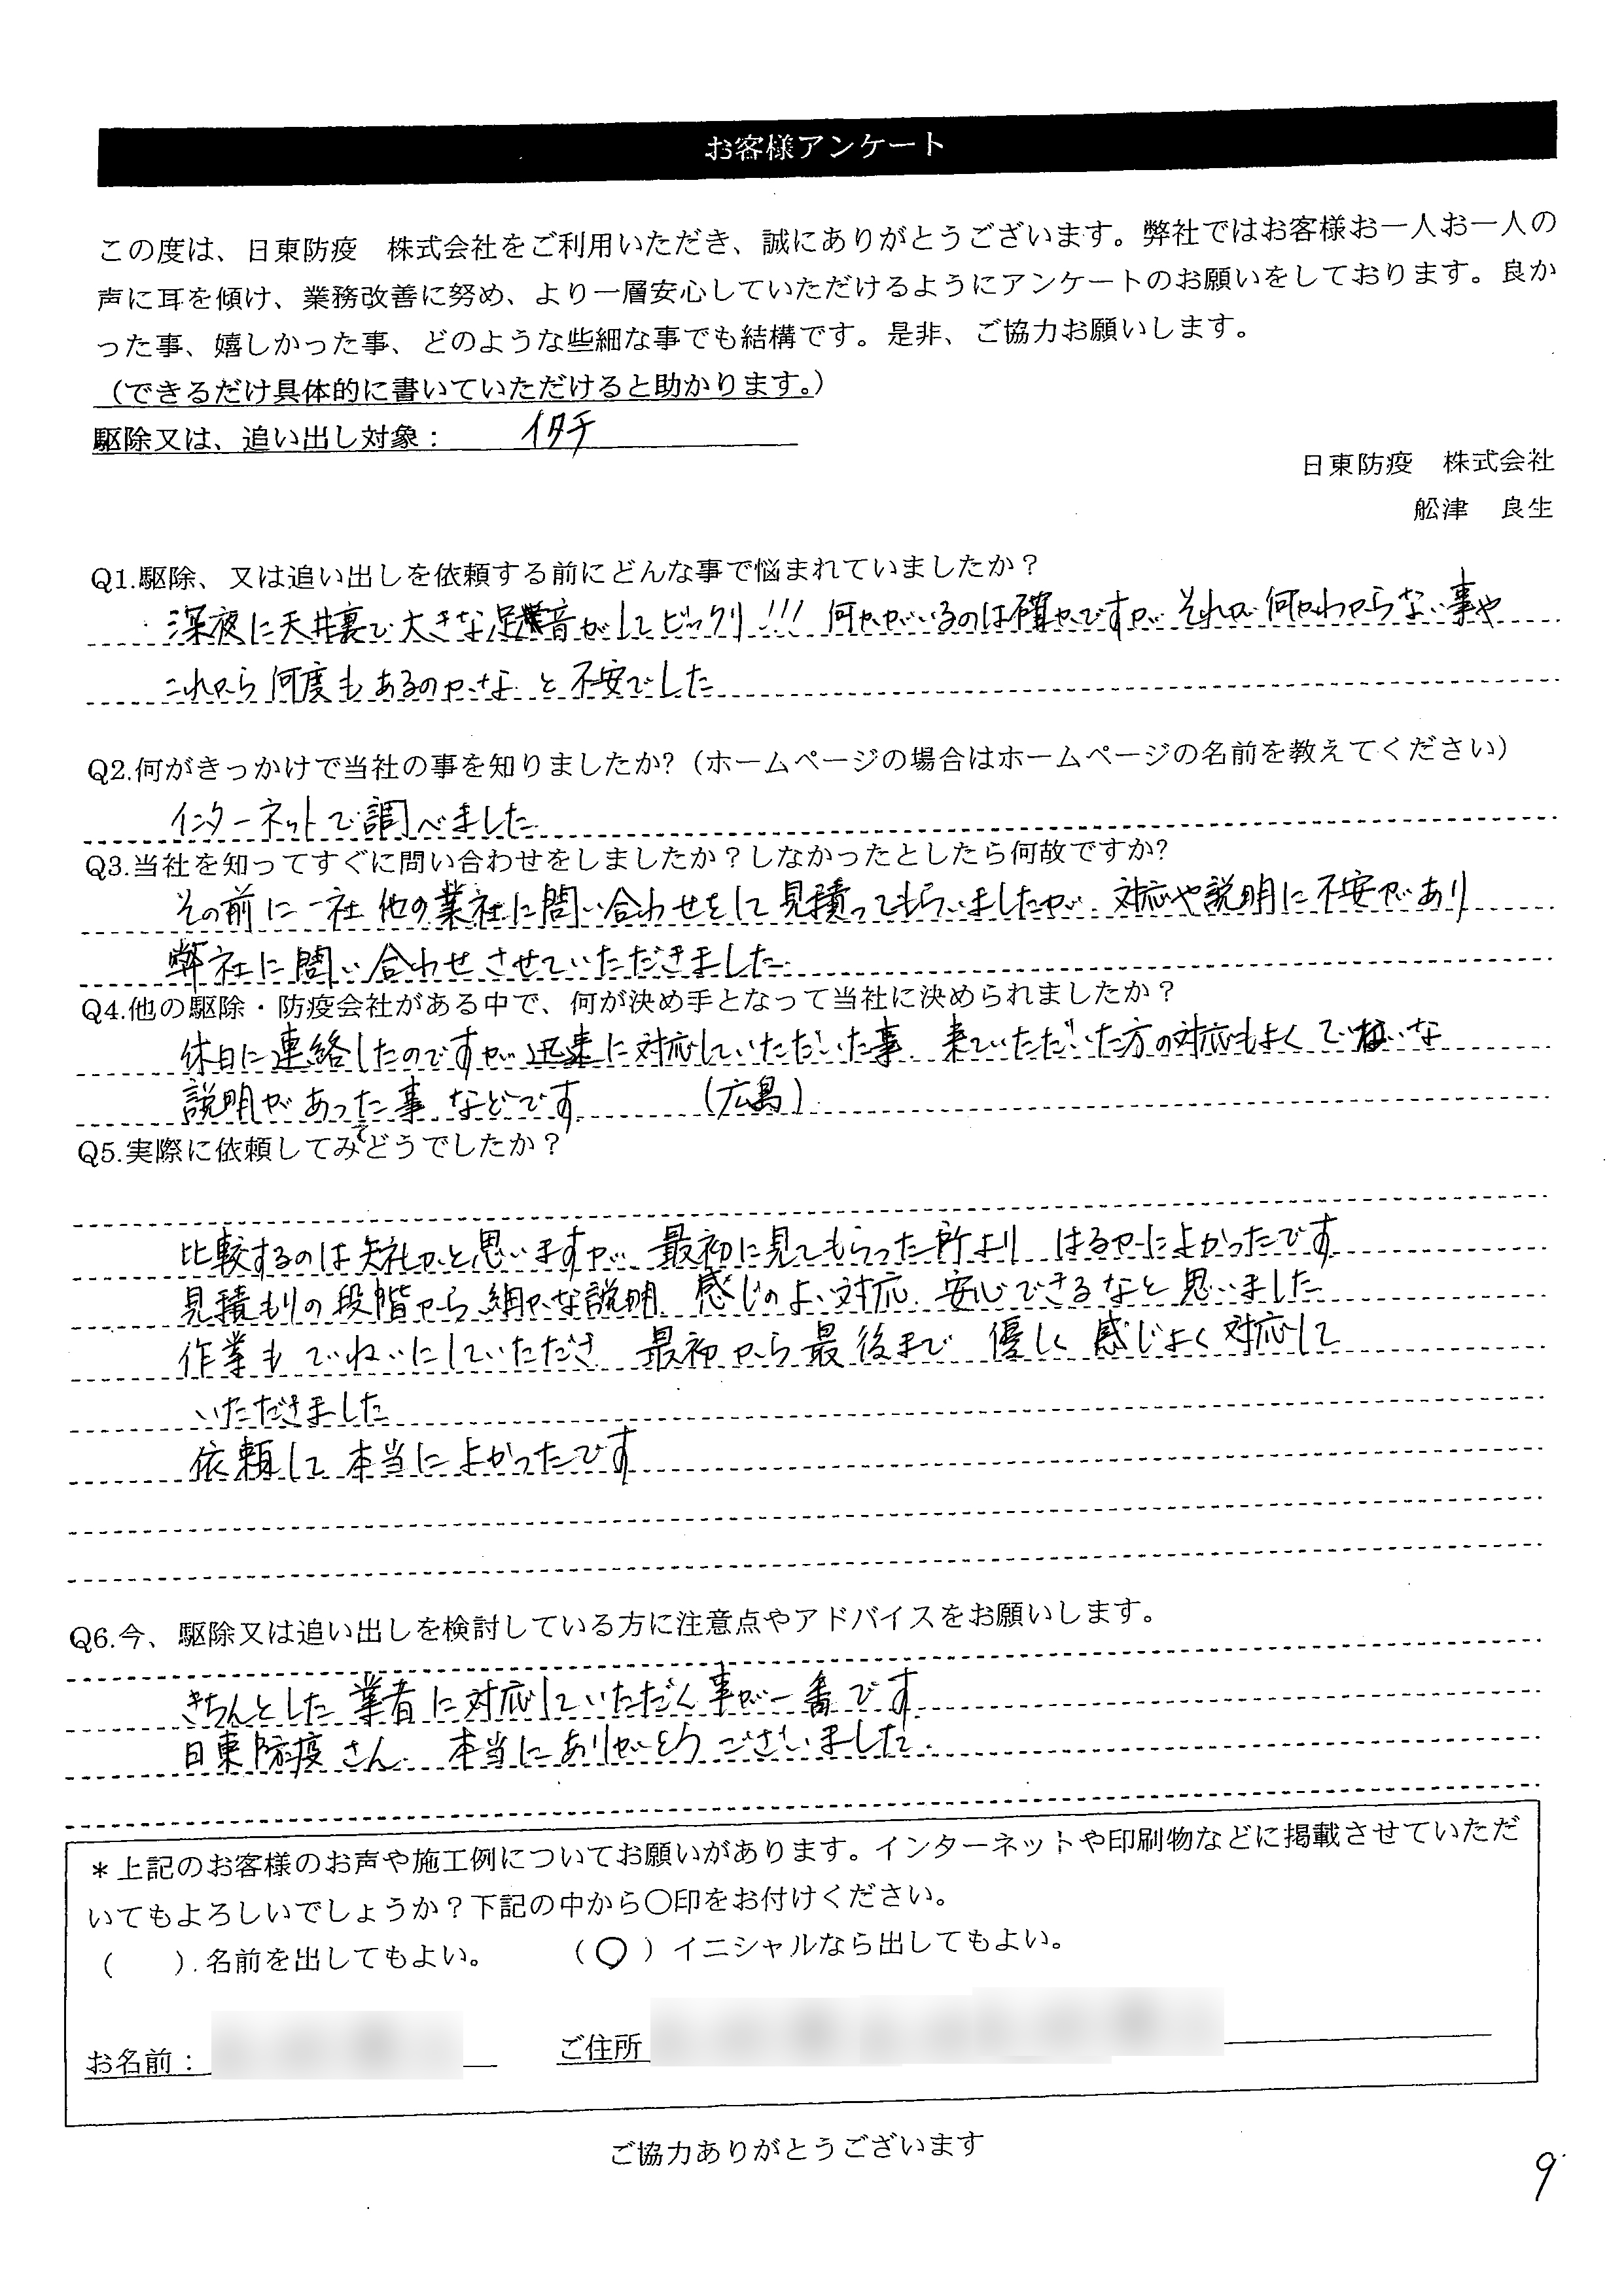 お客様アンケート
この度は、日東防疫 株式会社をご利用いただき、誠にありがとうございます。弊社ではお客様お一人お一人の
声に耳を傾け、業務改善に努め、より一層安心していただけるようにアンケートのお願いをしております。良か
った事、嬉しかった事、どのような些細な事でも結構です。是非、ご協力お願いします。
（できるだけ具体的に書いていただけると助かります。）
駆除又は、追い出し対象： イタチ
日東防疫 株式会社
舩津 良生
Q1.駆除、又は追い出しを依頼する前にどんな事で悩まれていましたか？
深夜に天井裏で大きな足音がしてビックリ!!! 何かがいるのは確かですが それが何かわからない事や
これから何度もあるのかなと不安でした
Q2.何がきっかけで当社の事を知りましたか?（ホームページの場合はホームページの名前を教えてください）
インターネットで調べました
Q3.当社を知ってすぐに問い合わせをしましたか？しなかったとしたら何故ですか?
その前に一社他の業社に問い合わせをして見積ってもらいましたが、対応や説明に不安があり
弊社に問い合わせさせていただきました
Q4.他の駆除・防疫会社がある中で、何が決め手となって当社に決められましたか？
休日に連絡したのですが 迅速に対応していただいた事、来ていただいた方の対応もよくていねいな
説明があった事などです （広島）
Q5.実際に依頼してみてどうでしたか？
比較するのは失礼かと思いますが、最初に見てもらった所より はるかによかったです
見積もりの段階から細かな説明、感じのよい対応、安心できるなと思いました
作業もていねいにしていただき 最初から最後まで 優しく感じよく対応して
いただきました
依頼して本当によかったです
Q6.今、駆除又は追い出しを検討している方に注意点やアドバイスをお願いします。
きちんとした業者に対応していただく事が一番です
日東防疫さん、本当にありがとうございました。
＊上記のお客様のお声や施工例についてお願いがあります。インターネットや印刷物などに掲載させていただ
いてもよろしいでしょうか？下記の中から〇印をお付けください。
（ ）.名前を出してもよい。 （〇）イニシャルなら出してもよい。
お名前： ご住所
ご協力ありがとうございます
9